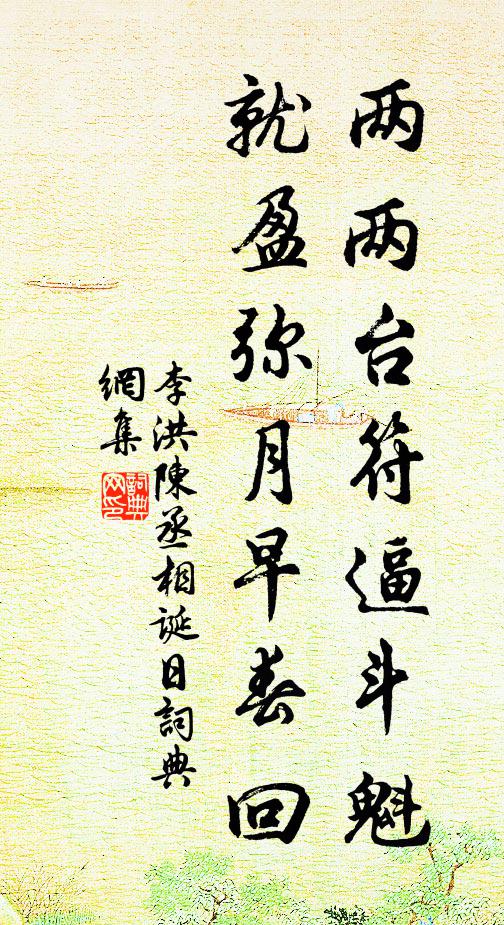 两两台符逼斗魁
就盈弥月早春回
李洪陳丞相誕日詞典
網集
詞典
网印